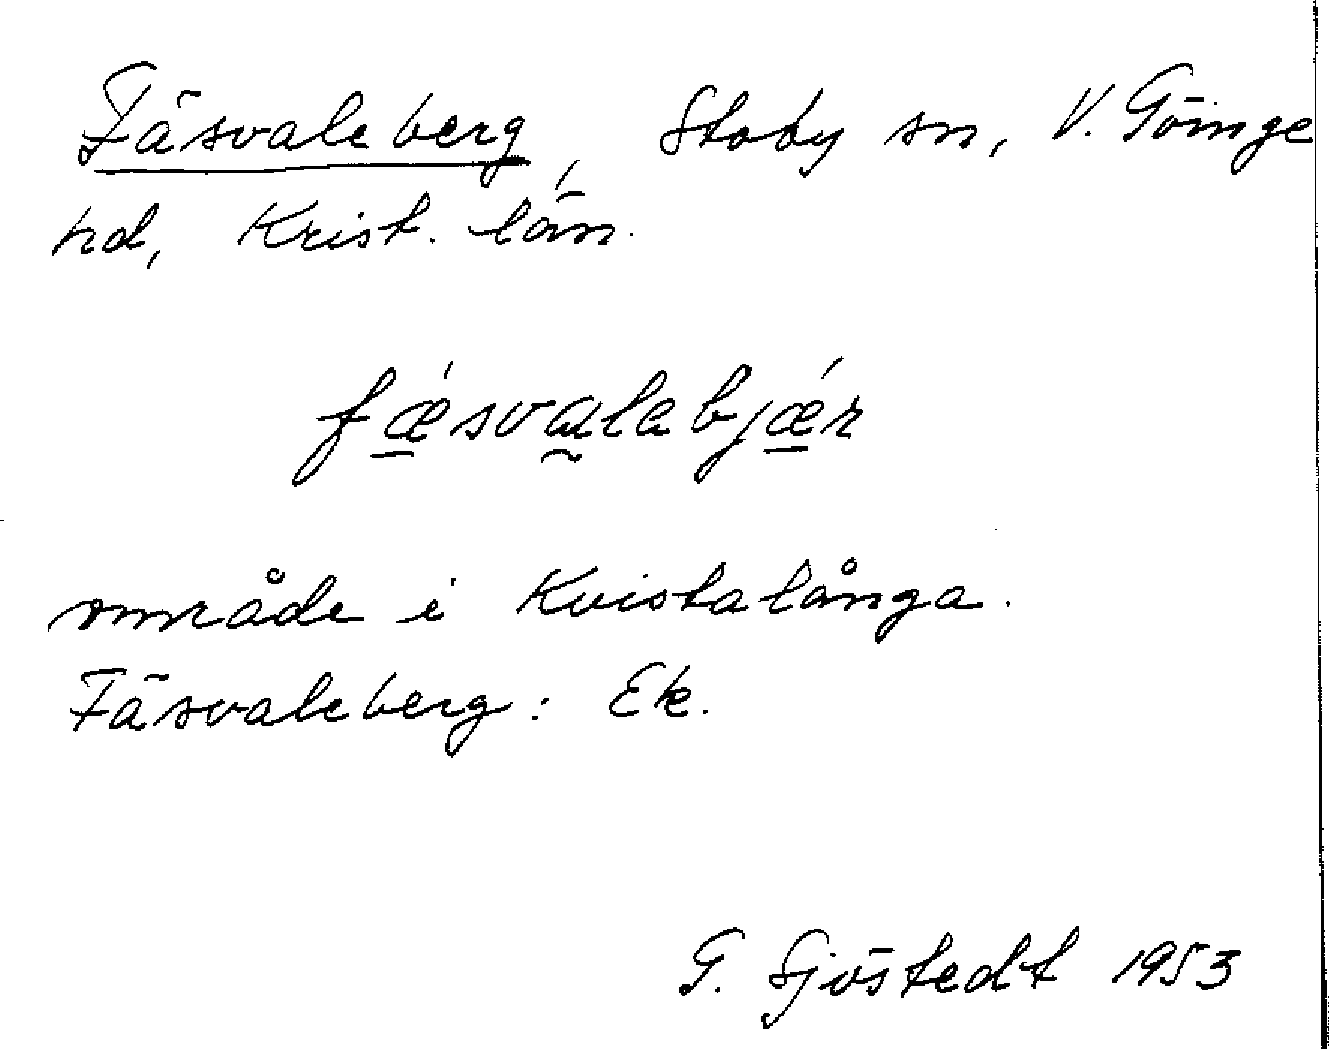 Fäsvaleberg, Stoby sn, V. Göinge
hd, Krist. län.
fǽsvalabjǽr
område i Kvistalånga.
Fäsvaleberg: Ek.
G. Sjöstedt 1953